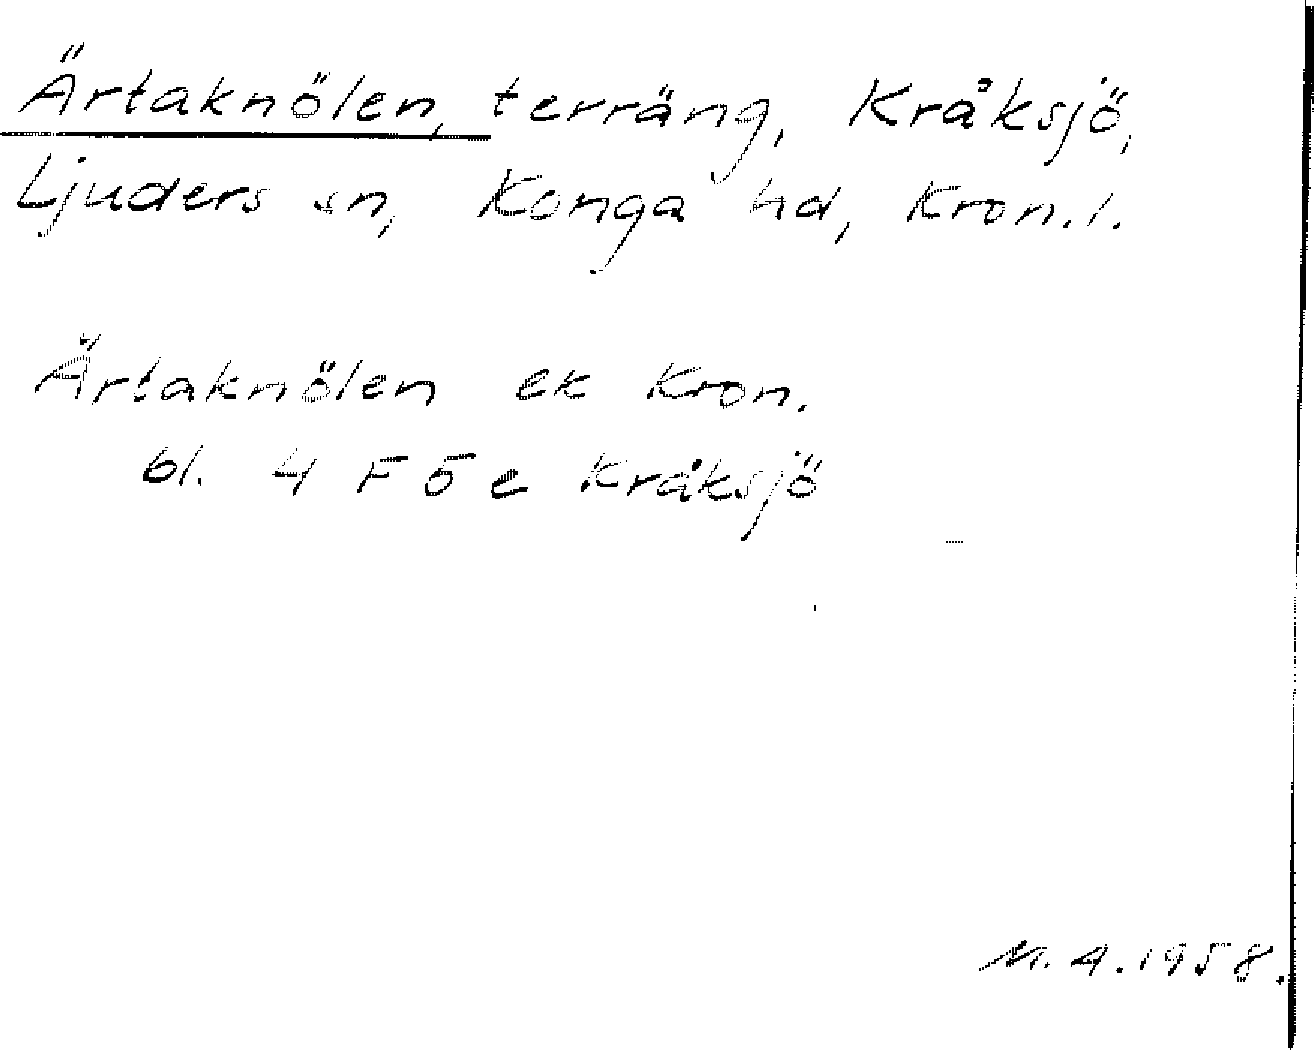 Ärtaknölen, terräng, Kråksjö,
Ljuders sn, Konga hd, Kron. l.
Ärtaknölen ek Kron.
bl. 4 F 5 e Kråksjö
M. A. 1958.